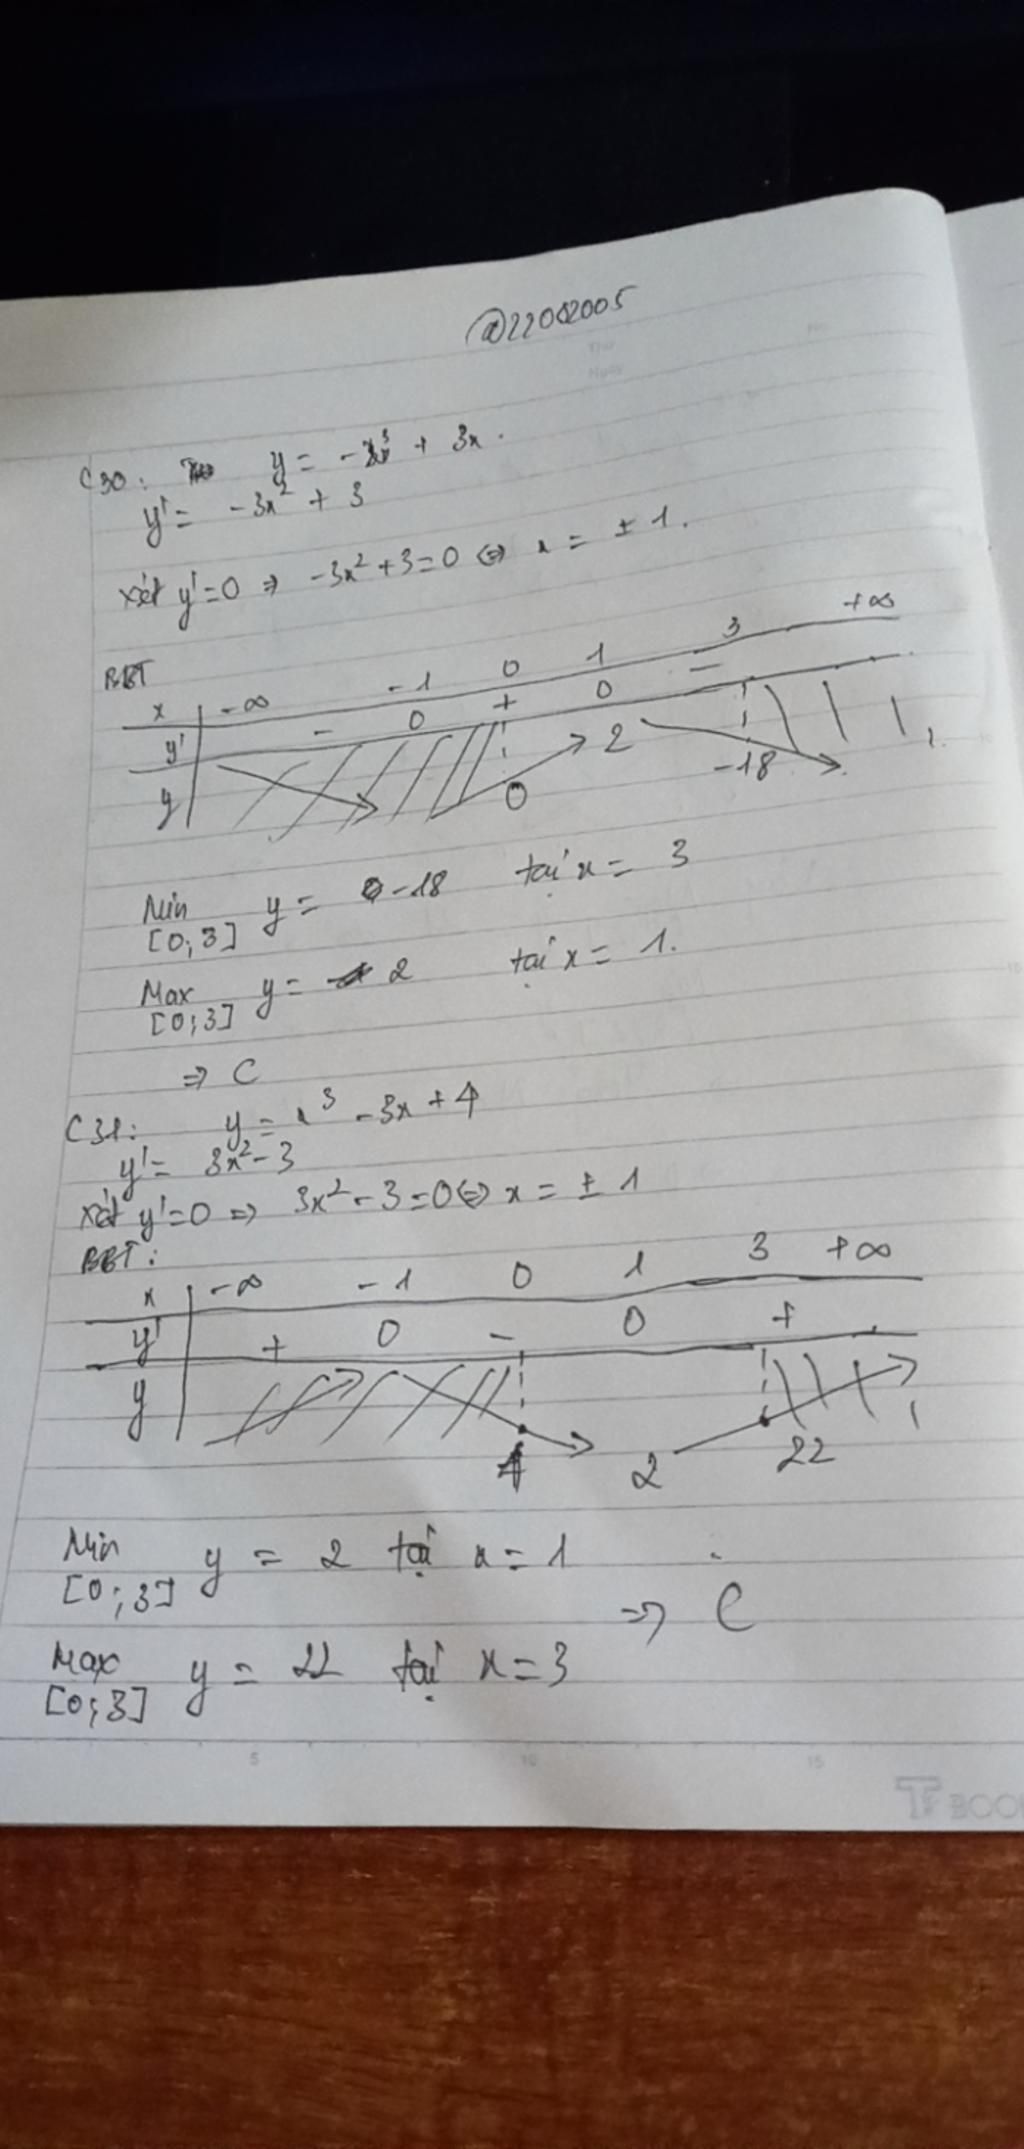 @22082005
C30: y = -x³ + 3x.
y' = -3x² + 3
xét y'=0 ⇒ -3x²+3=0 ⇔ x = ± 1.
BBT
x -∞ -1 0 1 3 +∞
y' - 0 + 0 -
y 0 2 -18
Min y = -18 tại x = 3
[0;3]
Max y = 2 tại x = 1.
[0;3]
⇒ C
C31: y = x³ - 3x + 4
y' = 3x² - 3
xét y'=0 ⇒ 3x² - 3 = 0 ⇔ x = ± 1
BBT:
x -∞ -1 0 1 3 +∞
y' + 0 - 0 +
y 4 2 22
Min y = 2 tại x = 1
[0;3]
⇒ C
Max y = 22 tại x = 3
[0;3]
5 10 15